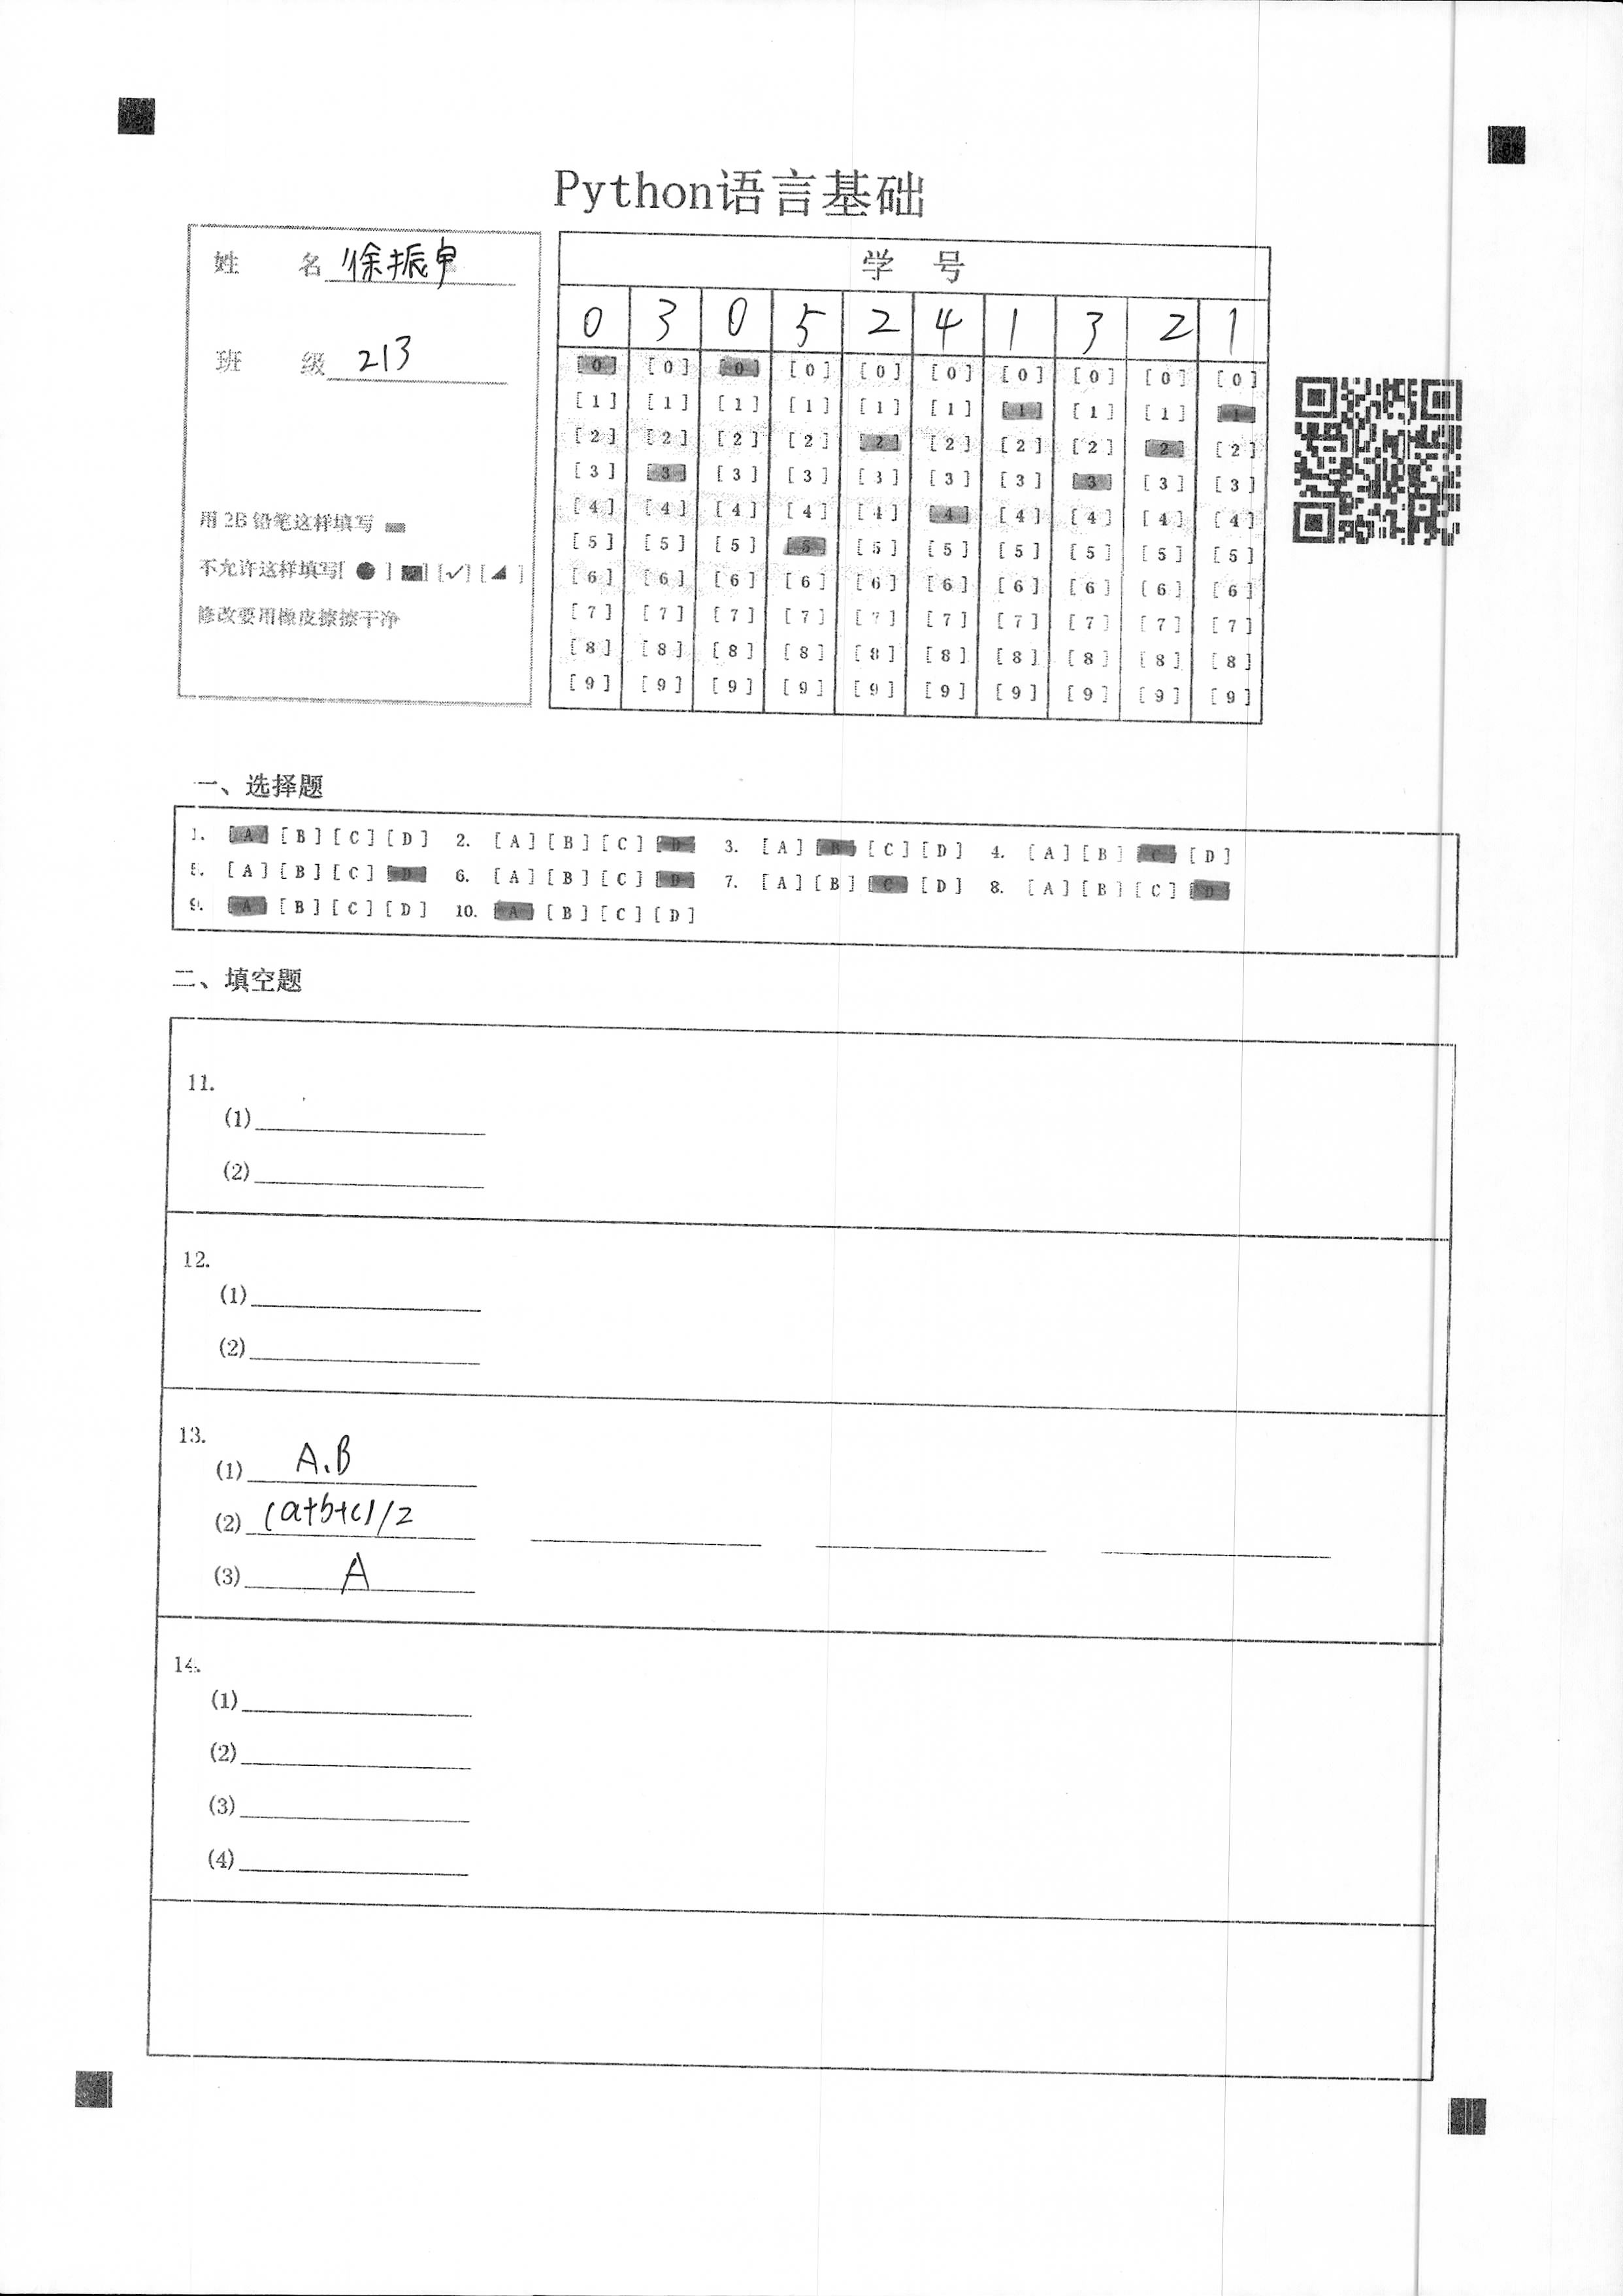 Python语言基础
姓 名 徐振申
班 级 213
用 2B 铅笔这样填写
不允许这样填写[ ● ] [■] [✓] [◢ ]
修改要用橡皮擦擦干净
学 号
0 3 0 5 2 4 1 3 2 1
[0] [0] [0] [0] [0] [0] [0] [0] [0] [0]
[1] [1] [1] [1] [1] [1] [1] [1] [1] [1]
[2] [2] [2] [2] [2] [2] [2] [2] [2] [2]
[3] [3] [3] [3] [3] [3] [3] [3] [3] [3]
[4] [4] [4] [4] [4] [4] [4] [4] [4] [4]
[5] [5] [5] [5] [5] [5] [5] [5] [5] [5]
[6] [6] [6] [6] [6] [6] [6] [6] [6] [6]
[7] [7] [7] [7] [7] [7] [7] [7] [7] [7]
[8] [8] [8] [8] [8] [8] [8] [8] [8] [8]
[9] [9] [9] [9] [9] [9] [9] [9] [9] [9]
一、选择题
1. [A] [B] [C] [D] 2. [A] [B] [C] [D] 3. [A] [B] [C] [D] 4. [A] [B] [C] [D]
5. [A] [B] [C] [D] 6. [A] [B] [C] [D] 7. [A] [B] [C] [D] 8. [A] [B] [C] [D]
9. [A] [B] [C] [D] 10. [A] [B] [C] [D]
二、填空题
11.
(1)
(2)
12.
(1)
(2)
13.
(1) A、B
(2) (a+b+c)/2
(3) A
14.
(1)
(2)
(3)
(4)